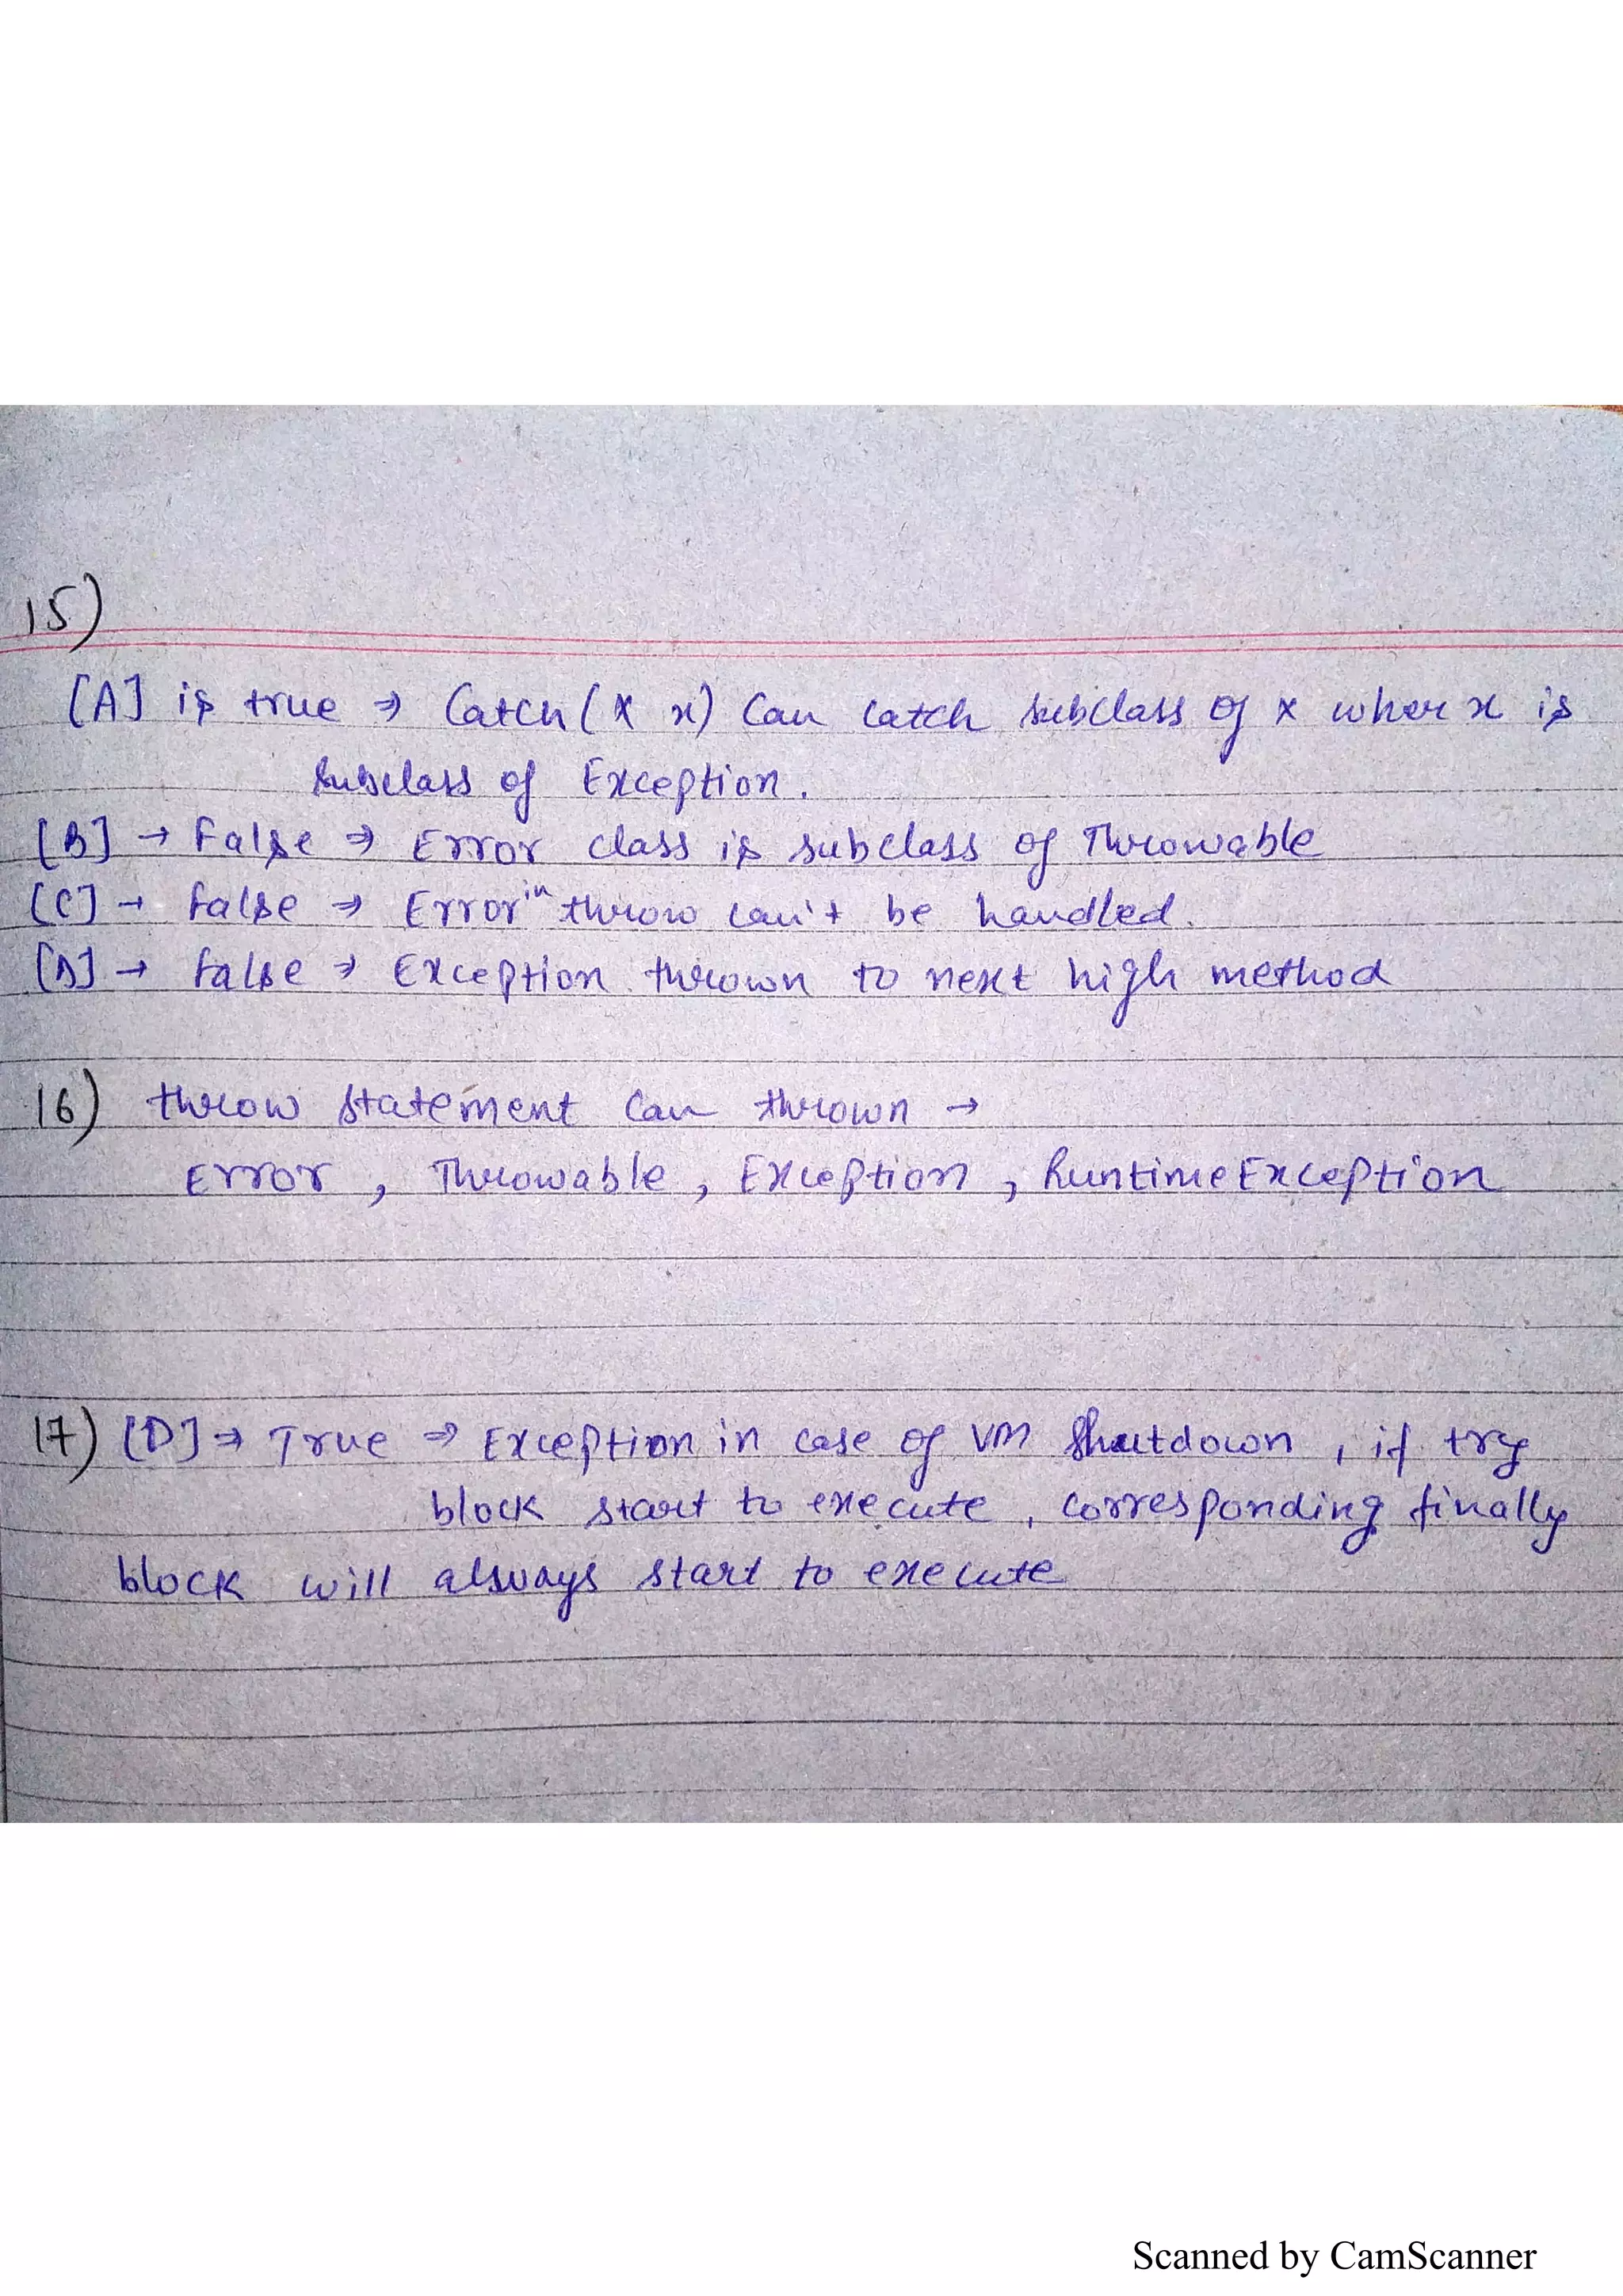 15)
[A] is true → Catch(X x) Can catch subclass of x wher x is
Subclass of Exception.
[B] → False ⇒ Error class is subclass of Throwable
[C] → false ⇒ Error in throw can't be handled.
[D] → false ⇒ Exception thrown to next high method
16) throw statement can thrown →
Error, Throwable, Exception, RuntimeException
17) [D] ⇒ True ⇒ Exception in case of VM Shutdown, if try
block start to execute, corresponding finally
block will always start to execute
Scanned by CamScanner